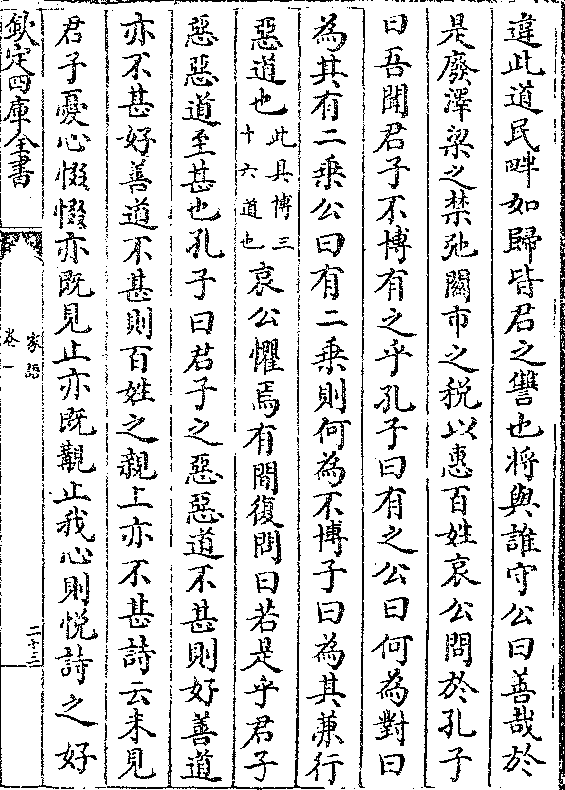 違此道民畔如歸皆君之讐也將與誰守公曰善哉於
是廢澤梁之禁弛關市之税以惠百姓哀公問於孔子
曰吾聞君子不博有之乎孔子曰有之公曰何為對曰
為其有二乗公曰有二乗則何為不博子曰為其兼行
惡道也此具博三十六道也哀公懼焉有間復問曰若是乎君子
惡惡道至甚也孔子曰君子之惡惡道不甚則好善道
亦不甚好善道不甚則百姓之親上亦不甚詩云未見
君子憂心惙惙亦既見止亦既覯止我心則悦詩之好
欽定四庫全書
家語
卷一
二十三